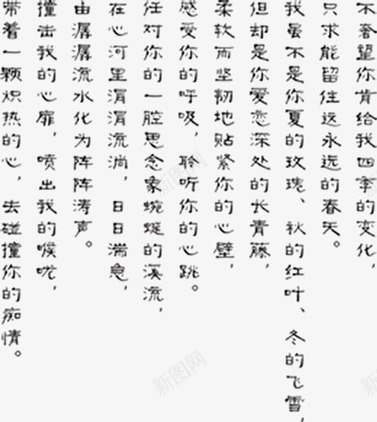 不奢望你肯给我四季的变化，
只求能留住远永远的春天。
我虽不是你夏的玫瑰、秋的红叶、冬的飞雪，
但却是你爱恋深处的长青藤，
柔软而坚韧地贴紧你的心壁，
感受你的呼吸，聆听你的心跳。
任对你的一腔思念象蜿蜒的溪流，
在心河里涓涓流淌，日日湍急，
由潺潺流水化为阵阵涛声。
撞击我的心扉，喷出我的喉咙，
带着一颗炽热的心，去碰撞你的痴情。
新图网